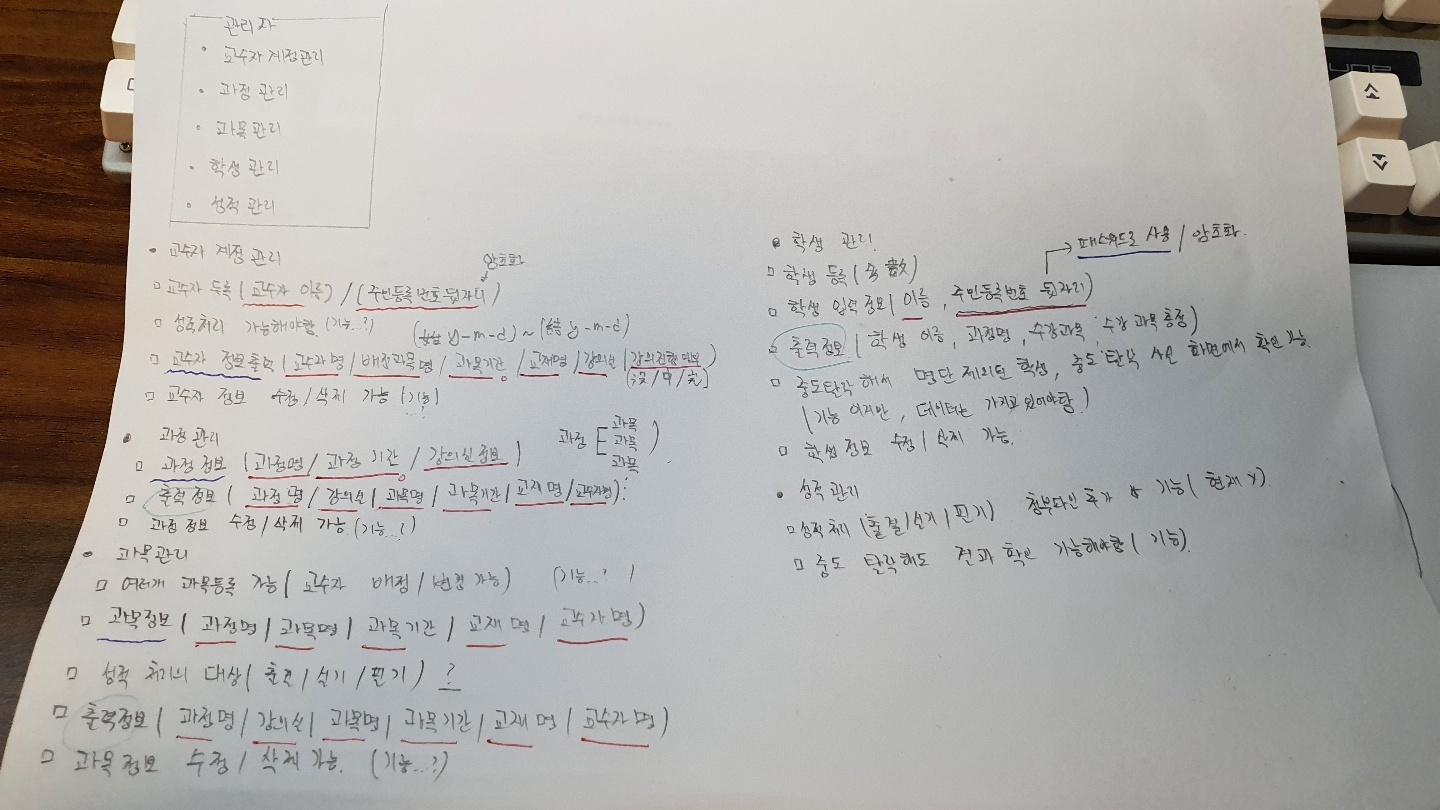 관리자
• 교수자 계정관리
• 과정 관리
• 과목 관리
• 학생 관리
• 성적 관리
• 교수자 계정 관리
암호화
□ 교수자 등록 (교수자 이름) / (주민등록번호 뒷자리)
□ 성적처리 가능해야함 (기능...?)
y-m-d) ~ ( y-m-d)
□ 교수자 정보출력 (교수자명 / 배정과목명 / 과목기간 / 교재명 / 강의실 / 강의진행 여부
□ 교수자 정보 수정/삭제 가능 (기능)
• 과정 관리
과정 [ 과목
과목
과목 )
□ 과정 정보 (과정명 / 과정 기간 / 강의실 정보)
□ 출력정보 (과정명 / 강의실 / 과목명 / 과목기간 / 교재명 / 교수자명)
□ 과정 정보 수정/삭제 가능 (기능...?)
• 과목관리
□ 여러개 과목등록 가능 (교수자 배정 / 변경 가능) (기능...? )
□ 과목정보 (과정명 / 과목명 / 과목기간 / 교재명 / 교수자명)
□ 성적 처리의 대상 (출결 / 실기 / 필기) ?
□ 출력정보 (과정명 / 강의실 / 과목명 / 과목기간 / 교재명 / 교수자명)
□ 과목정보 수정 / 삭제가능. (기능...?)
• 학생 관리
패스워드로 사용 / 암호화.
□ 학생 등록 (多數)
□ 학생 입력 정보 (이름, 주민등록번호 뒷자리)
□ 출력정보 (학생 이름, 과정명, 수강과목, 수강 과목 총점)
□ 중도탈락 해서 명단 제외된 학생, 중도탈락 화면에서 확인 가능
(기능 이지만, 데이터는 가지고 있어야함)
□ 학생정보 수정 / 삭제 가능.
• 성적 관리
□ 성적처리 (출결/실기/필기) 첨부파일 추가 기능 (현재 X).
□ 중도 탈락해도 결과 확인 가능해야함 (기능).
소